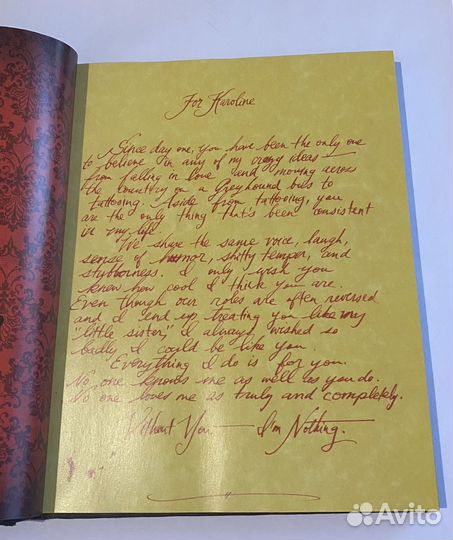 For Karoline
Since day one, you have been the only one
to believe in any of my crazy ideas —
from falling in love and moving across
the country on a Greyhound bus to
tattooing. Aside from tattooing, you
are the only thing that's been consistent
in my life.
We share the same voice, laugh,
sense of humor, shitty temper, and
stubbornness. I only wish you
knew how cool I think you are.
Even though our roles are often reversed
and I end up treating you like my
"little sister," I always wished so
badly I could be like you.
Everything I do is for you.
No one knows me as well as you do.
No one loves me as truly and completely.
Without You — I'm Nothing.
Avito